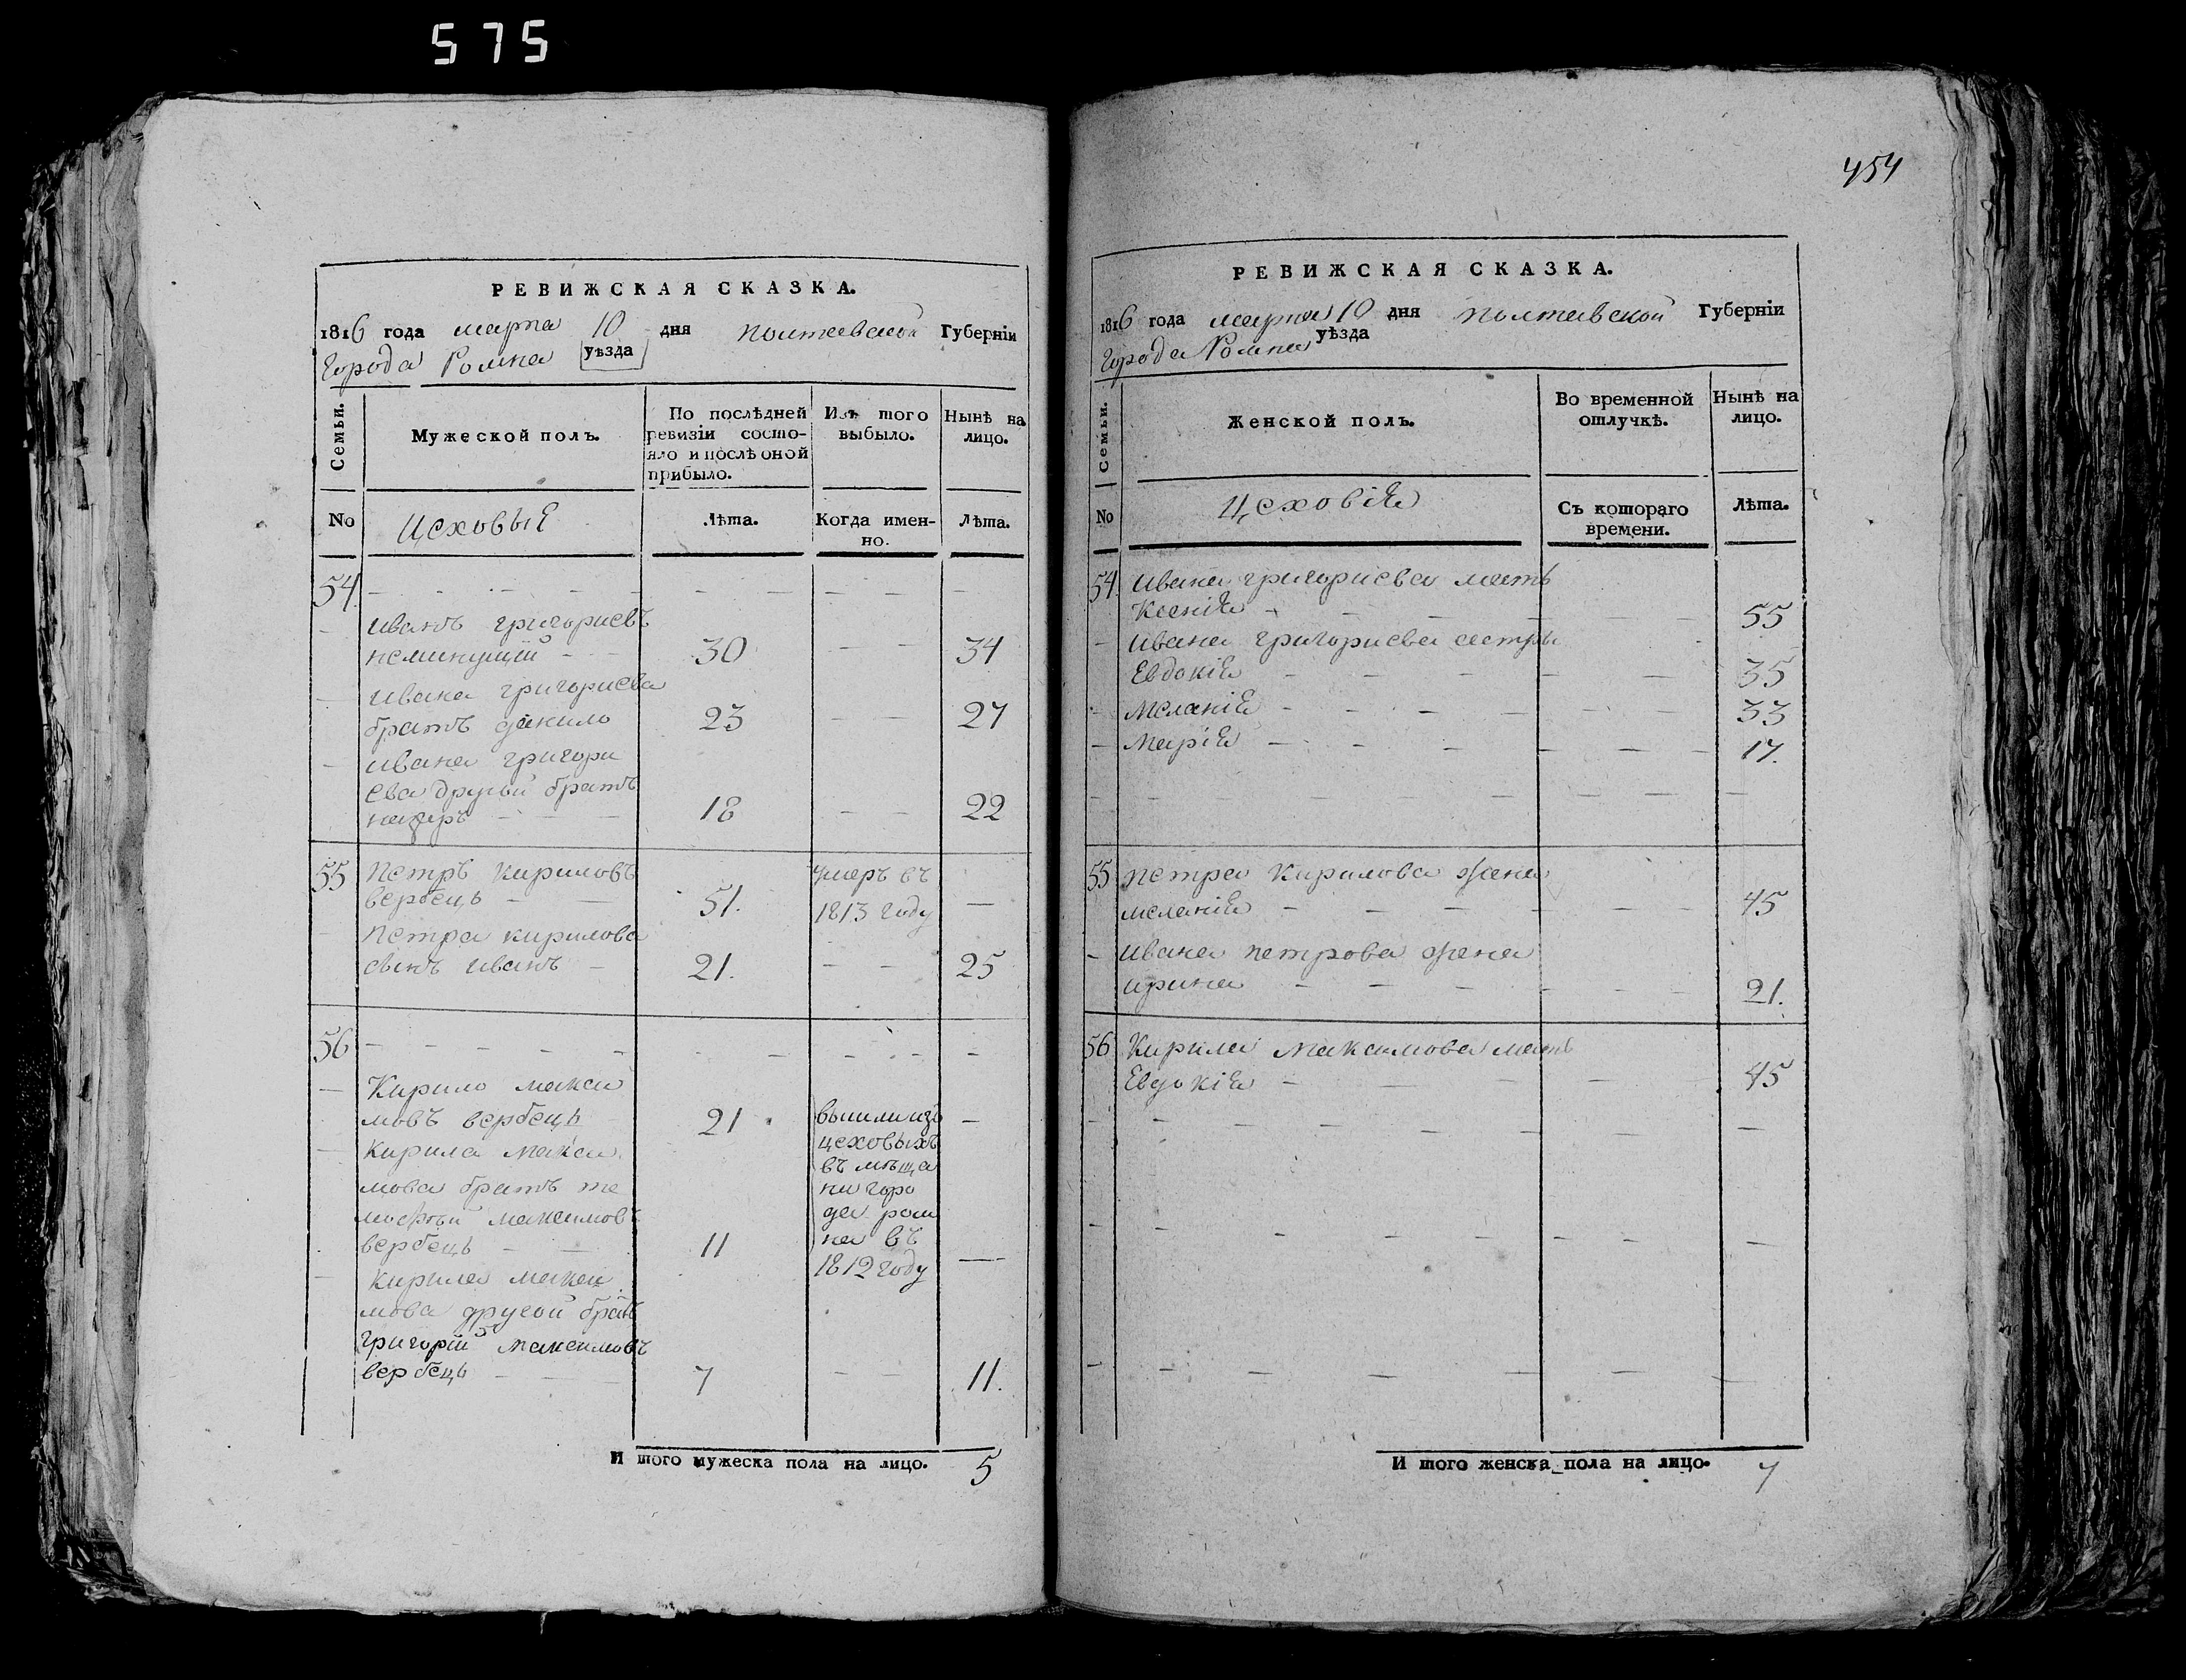 575
РЕВИЖСКАЯ СКАЗКА.
1816 года марта 10 дня полтавской Губерніи
Города Ромна уѣзда
Семьи.
Мужеской полъ.
По послѣдней ревизіи состо-
яло и послѣ оной прибыло.
Изъ того выбыло.
Нынѣ на лицо.
No
Цеховые
Лѣта.
Когда имен-
но.
Лѣта.
54
иванъ григориевъ
неминущій 30 34
ивана григориева
братъ данило 23 27
ивана григори
ева другой братъ
назаръ 18 22
55 петръ кириловъ умеръ въ
вербець 51. 1813 году
петра кирилова
сынъ иванъ 21. 25
56
Кирило макси
мовъ вербець 21 вышли изъ
цеховыхъ
кирила макси
въ мѣща
мова братъ ти
ни горо
мофѣй максимовъ
да ром
вербець 11 на въ
1812 году
кирила макси
мова другой братъ
григорій максимовъ
вербець 7 11.
И того мужеска пола на лицо. 5
454
РЕВИЖСКАЯ СКАЗКА.
1816 года марта 10 дня полтавской Губерніи
города Ромна уѣзда
Семьи.
Женской полъ.
Во временной отлучкѣ.
Нынѣ на лицо.
No
Цеховіе
Съ котораго времени.
Лѣта.
54 ивана григориева мать
Ксенія 55
ивана григориева сестры
Евдокія 35
Меланія 33
Марія 17.
55 петра Кирилова жена
меланія 45
ивана петрова жена
ирина 21.
56 Кирила Максимова мать
Евдокія 45
И того женска пола на лицо. 7